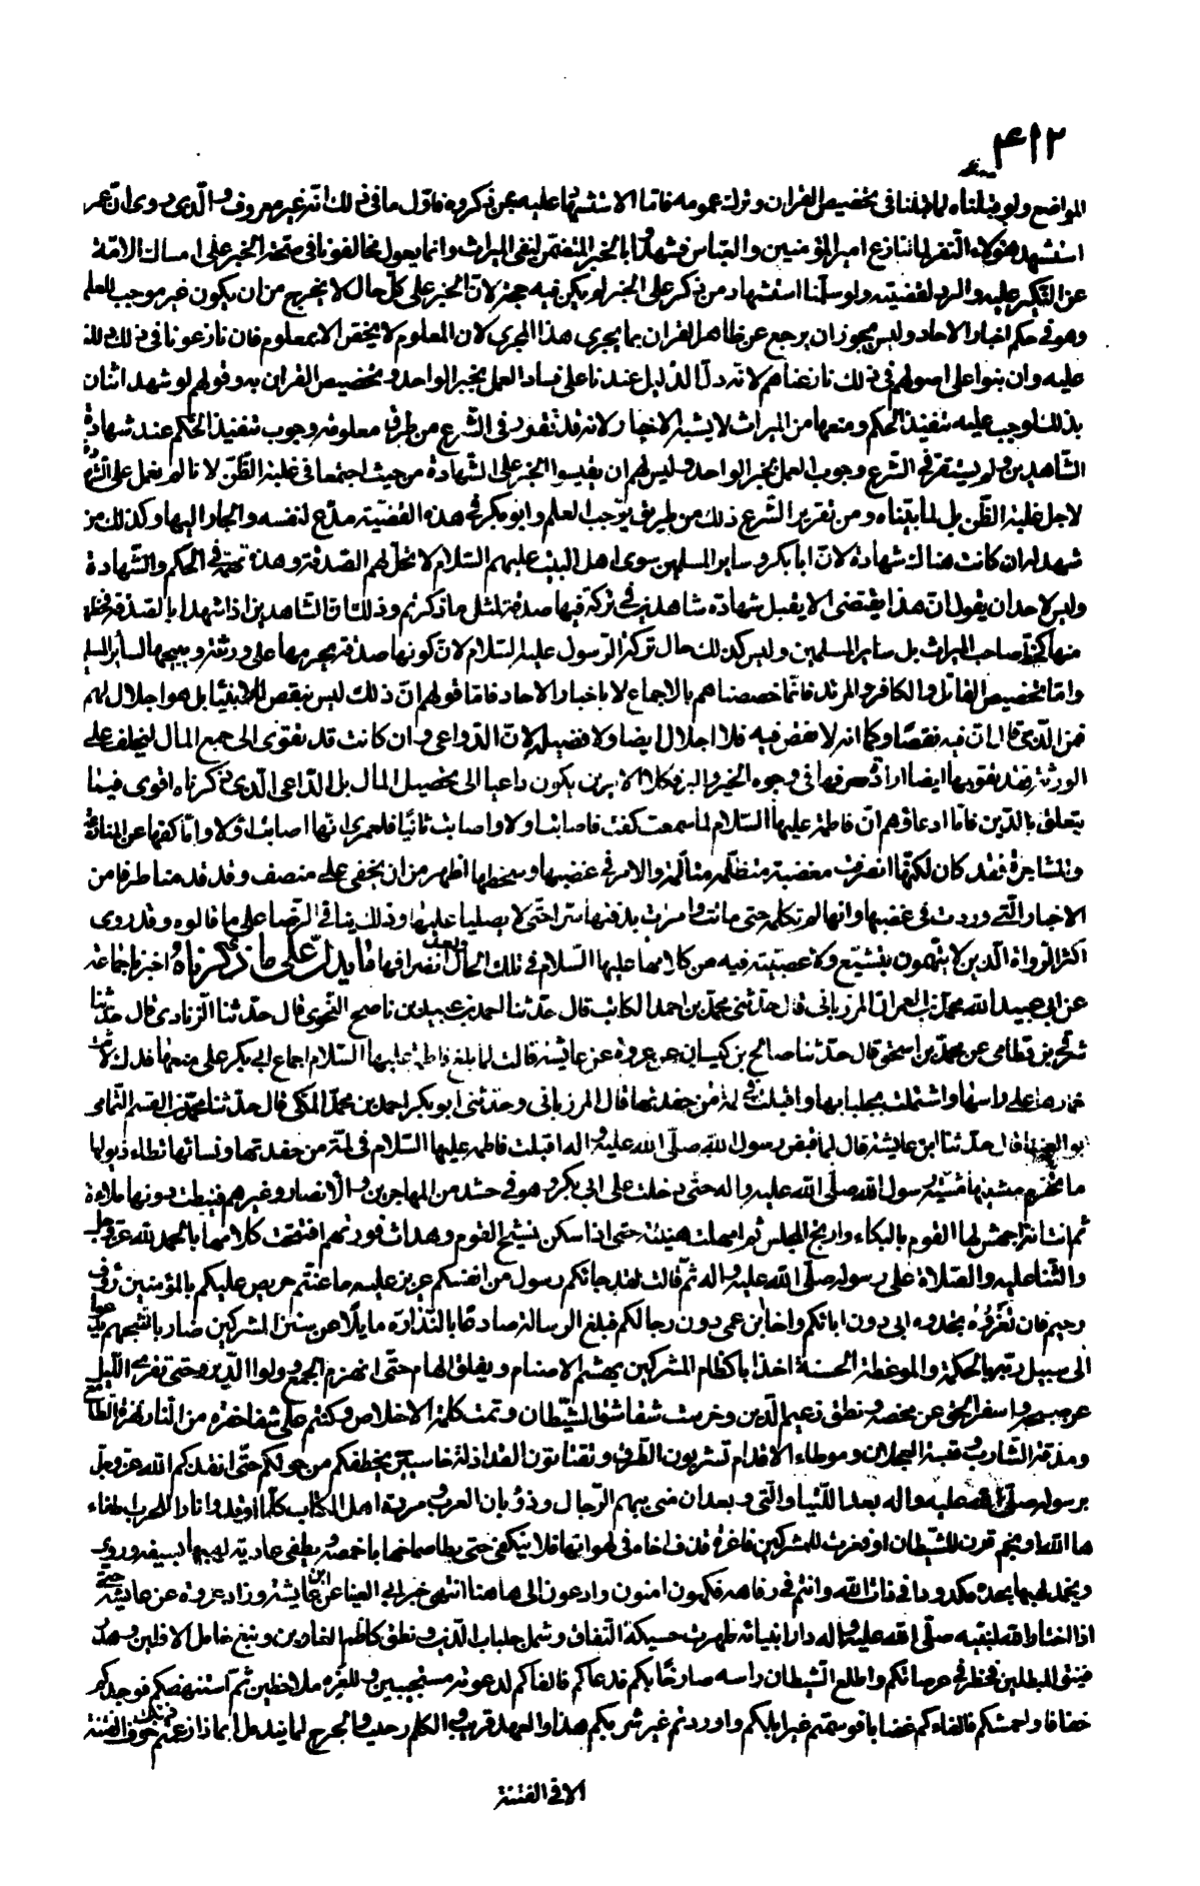 ۴۱۲
المواضع ولو قبلناه لما قبلنا في تخصيص القران وترك عمومه فاما الاستشهاد عليه بمن ذكروه فاول ما في ذلك انه غير معروف والذي روى ان عمر
استشهد هؤلاء النفر لما تنازع امير المؤمنين والعباس فشهدوا بالخبر المتضمن لنفى الميراث وانما يعول مخالفونا في صحة الخبر على امساك الامة
عن النكير عليه والرد لقضيته ولو سلمنا استشهاد من ذكر على الخبر لم يكن فيه حجة لان الخبر على كل حال لا يخرج من ان يكون غير موجب للعلم
وهو في حكم اخبار الاحاد وليس يجوز ان يرجع عن ظاهر القران بما يجرى هذا المجرى لان المعلوم لا يخص الا بمعلوم فان نازعونا في ذلك
عليه وان بنوا على اصولهم في ذلك نازعناهم لانه دل الدليل عندنا على فساد العمل بخبر الواحد و تخصيص القران به وقولهم لو شهد اثنان
بذلك لوجب عليه تنفيذ الحكم ومنعها من الميراث لا يشبه الاخبار لانه قد تقرر في الشرع من طرق معلومة وجوب تنفيذ الحكم عند شهادة
الشاهدين ولم يستقر في الشرع وجوب العمل بخبر الواحد وليس لهم ان يقيسوا الخبر على الشهادة من حيث اجتمعا في غلبة الظن لانا لم نعمل على الشهادة
لاجل غلبة الظن بل لما بيناه ومن تقرير الشرع ذلك من طريق يوجب العلم وابو بكر في هذه القضية مدع لنفسه والجار اليها وكذلك من
شهد له ان كانت هناك شهادة لان ابا بكر و ساير المسلمين سوى اهل البيت عليهم السلام لا تحل لهم الصدقة وهذه تهمة في الحكم والشهادة
وليس لاحد ان يقول ان هذا يقتضى الا يقبل شهادة شاهدين في تركة فيها صدقة لمثل ما ذكرتم وذلك ان الشاهدين اذا شهدا بالصدقة فحظهما
منها كحظ صاحب الميراث بل ساير المسلمين وليس كذلك حال تركة الرسول عليه السلام لان كونها صدقة يحرمها على ورثته ويبيحها لساير المسلمين
واما تخصيص القاتل والكافر والمرتد فانما خصصناهم بالاجماع لا باخبار الاحاد فاما قولهم ان ذلك ليس بنقص للانبياء بل هو اجلال لهم
فمن الذي قال ان فيه نقصا وكما انه لا نقص فيه فلا اجلال ايضا ولا فضيلة لان الدواعى و ان كانت قد تقوى الى جمع المال ليخلف على
الورثة فقد يقويها ايضا ارادة صرفها في وجوه الخير والبر وكلا الامرين يكون داعيا الى تحصيل المال بل الداعى الذي ذكرناه اقوى فيما
يتعلق بالدين فاما ادعاؤهم ان فاطمة عليها السلام لما سمعت كفت فاصابت اولا واصابت ثانيا فلعمري انها اصابت اولا واما كفها عن المنازعة
والمشاجرة فقد كان لكنها انصرفت مغضبة متظلمة متالمة والامر في غضبها وسخطها اظهر من ان يخفى على منصف وقد قدمنا طرفا من
الاخبار التي وردت في غضبها وانها لم تكلمه حتى ماتت وامرت بدفنها سرا حتى لا يصليا عليها وذلك ينافي الرضا على ما قالوه وقد روى
اكثر الرواة الذين لا يتهمون بتشيع ولا عصبية فيه من كلامها عليها السلام في تلك الحال وبعد انصرافها ما يدل على ما ذكرناه اخبرنا جماعة
عن ابي عبيد الله محمد بن العمران المرزباني قال حدثني محمد بن احمد الكاتب قال حدثنا احمد بن عبيد بن ناصح النحوي قال حدثنا الزيادى قال حدثنا
شرقي بن قطامى عن محمد بن اسحق قال حدثنا صالح بن كيسان عن عروة عن عايشة قالت لما بلغ فاطمة عليها السلام اجماع ابي بكر على منعها فدك لاثت
خمارها على راسها واشتملت بجلبابها واقبلت في لمة من حفدتها قال المرزباني وحدثني ابو بكر احمد بن محمد المكي قال حدثنا محمد بن القسم اليمامى
ابو العينا قال حدثنا ابن عايشة قال لما قبض رسول الله صلى الله عليه واله اقبلت فاطمة عليها السلام في لمة من حفدتها ونسائها تطاء ذيولها
ما تخرم مشيتها مشية رسول الله صلى الله عليه واله حتى دخلت على ابي بكر وهو في حشد من المهاجرين والانصار وغيرهم فنيطت دونها ملاءة
ثم انت انة اجهش لها القوم بالبكاء وارتج المجلس ثم امهلت هنيئة حتى اذا سكن نشيج القوم وهدات فورتهم افتتحت كلامها بالحمد لله عز وجل
والثناء عليه والصلاة على رسوله صلى الله عليه واله ثم قالت لقد جائكم رسول من انفسكم عزيز عليه ما عنتم حريص عليكم بالمؤمنين رؤف
رحيم فان تعرفوه تجدوه ابي دون ابائكم واخا ابن عمى دون رجالكم فبلغ الرسالة صادعا بالنذارة مايلا عن سنن المشركين ضاربا ثبجهم يدعوا
الى سبيل ربه بالحكمة والموعظة الحسنة اخذا باكظام المشركين يهشم الاصنام ويفلق الهام حتى انهزم الجمع وولوا الدبر وحتى تفرى الليل
عن صبحه واسفر الحق عن محضه ونطق زعيم الدين وخرست شقاشق الشيطان وتمت كلمة الاخلاص وكنتم على شفا حفرة من النار نهزة الطامع
ومذقة الشارب وقبسة العجلان وموطاء الاقدام تشربون الطرق وتقتاتون القد اذلة خاسئين يخطفكم من حولكم حتى انقذكم الله عز وجل
برسوله صلى الله عليه واله بعد اللتيا والتي وبعد ان منى ببهم الرجال وذؤبان العرب ومردة اهل الكتاب كلما اوقدوا نارا للحرب اطفاء
ها الله او نجم قرن للشيطان او فغرت للمشركين فاغرة قذف اخاه في لهواتها فلا ينكفى حتى يطاصماخها باخمصه ويطفى عادية لهبها بسيفه وروي
ويخمد لهبها بحده مكدودا في ذات الله وانتم في رفاهه فكهون امنون وادعون الى هاهنا انتهى خبر ابي العينا عن ابن عايشة وزاد عروة عن عايشة حتى
اذا اختار الله لنبيه صلى الله عليه واله دار انبيائه ظهرت حسيكة النفاق وشمل جلباب الدين ونطق كاظم الغاوين ونبغ خامل الافلين وهدر
فنيق المبطلين فخطر في عرصاتكم واطلع الشيطان راسه صارخا بكم فدعاكم فالفاكم لدعوته مستجيبين وللغرة ملاحظين ثم استنهضكم فوجدكم
خفافا واحمشكم فالفاكم غضابا فوسمتم غير ابلكم واوردتم غير شربكم هذا والعهد قريب والكلم رحيب والجرح لما يندمل ابماذا زعمتم خوف الفتنة
الا في الفتنة